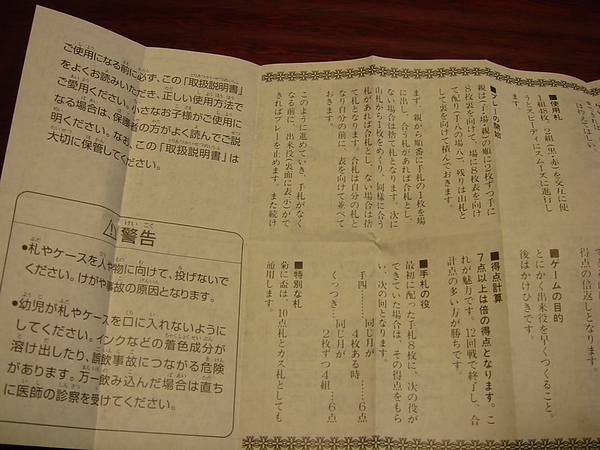 ご使用になる前に必ず、この「取扱説明書」
をよくお読みいただき、正しい使用方法で
ご愛用ください。小さなお子様がご使用に
なる場合は、保護者の方がよく読んでご説
明ください。なお、この「取扱説明書」は
大切に保管してください。
けいこく
⚠警告
●札やケースを人や物に向けて、投げないで
ください。けがや事故の原因となります。
●幼児が札やケースを口に入れないように
してください。インクなどの着色成分が
溶け出したり、誤飲事故につながる危険
があります。万一飲み込んだ場合は直ち
に医師の診察を受けてください。
■使用札
1組48枚、2組(黒・赤)を交互に使
うとスピーディにスムーズに進行し
ます。
■プレーの開始
親は(手・場・親)の順に2枚ずつ手に
8枚裏を向けて、場に8枚表を向け
て配り(手八の場八)、残りは山札と
して裏を向けて積んでおきます。
まず、親から順番に手札の1枚を場
に出し、合う札があれば合札とし、
ない場合は捨て札となります。次に
山札から1枚をめくり、同様に合う
札があれば合札とし、ない場合は捨
て札となります。合札は自分の札と
なり自分の前に、表を向けて並べて
おきます。
このように進めていき、手札がなく
なる前に、出来役(裏面に表示)がで
きればプレーを止めます。また続け
得点の倍返しとなります。
■ゲームの目的
とにかく出来役を早くつくること。
後はかけひきです。
■得点計算
7点以上は倍の得点となります。こ
れが魅力です。12回戦で終了し、合
計点の多い方が勝ちです。
■手札の役
最初に配った手札8枚に、次の役が
できていた場合は、その得点をもら
い、次の回となります。
手四……同じ月が
4枚ある時……6点
くっつき…同じ月が
2枚ずつ4組…6点
■特別な札
菊に盃は、10点札とカス札としても
通用します。